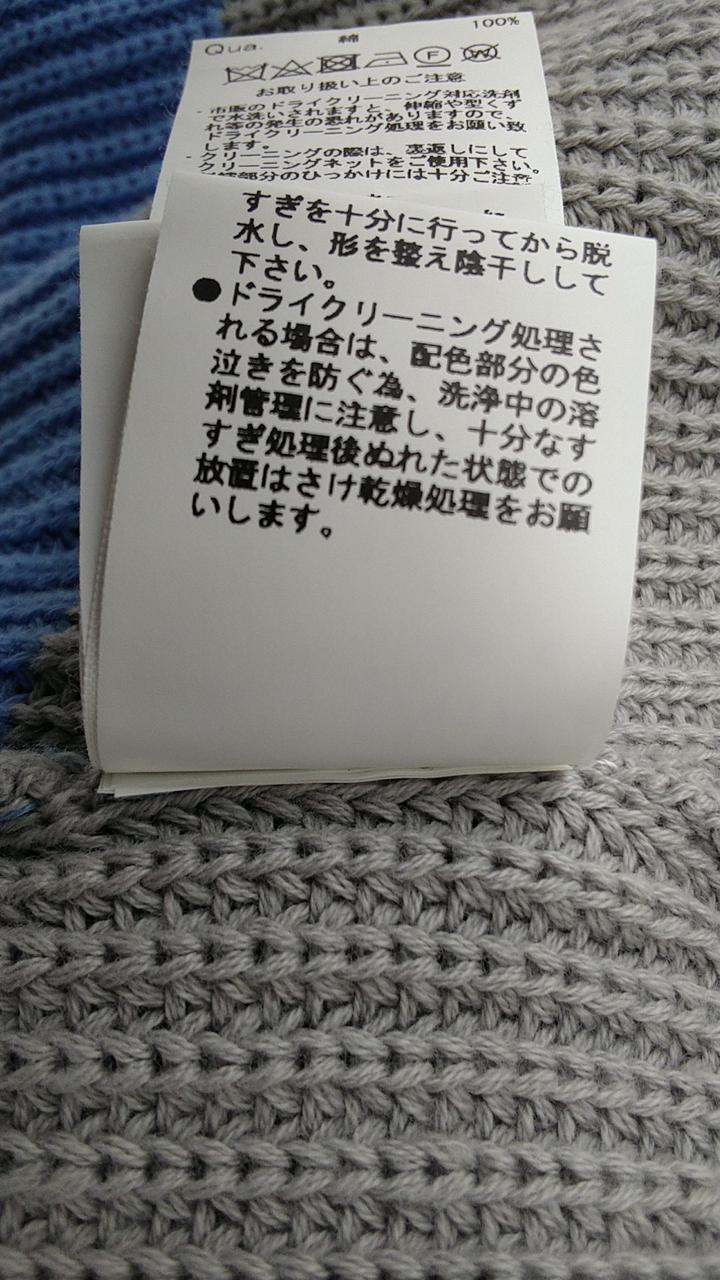 Qua. 綿 100%
F W
お取り扱い上のご注意
・市販のドライクリーニング対応洗剤
で水洗いされますと、伸縮や型くず
れ等の発生の恐れがありますので、
ドライクリーニング処理をお願い致
します。
・クリーニングの際は、裏返しにして
クリーニングネットをご使用下さい。
部分のひっかけには十分ご注意
すぎを十分に行ってから脱
水し、形を整え陰干しして
下さい。
●ドライクリーニング処理さ
れる場合は、配色部分の色
泣きを防ぐ為、洗浄中の溶
剤管理に注意し、十分なす
すぎ処理後ぬれた状態での
放置はさけ乾燥処理をお願
いします。